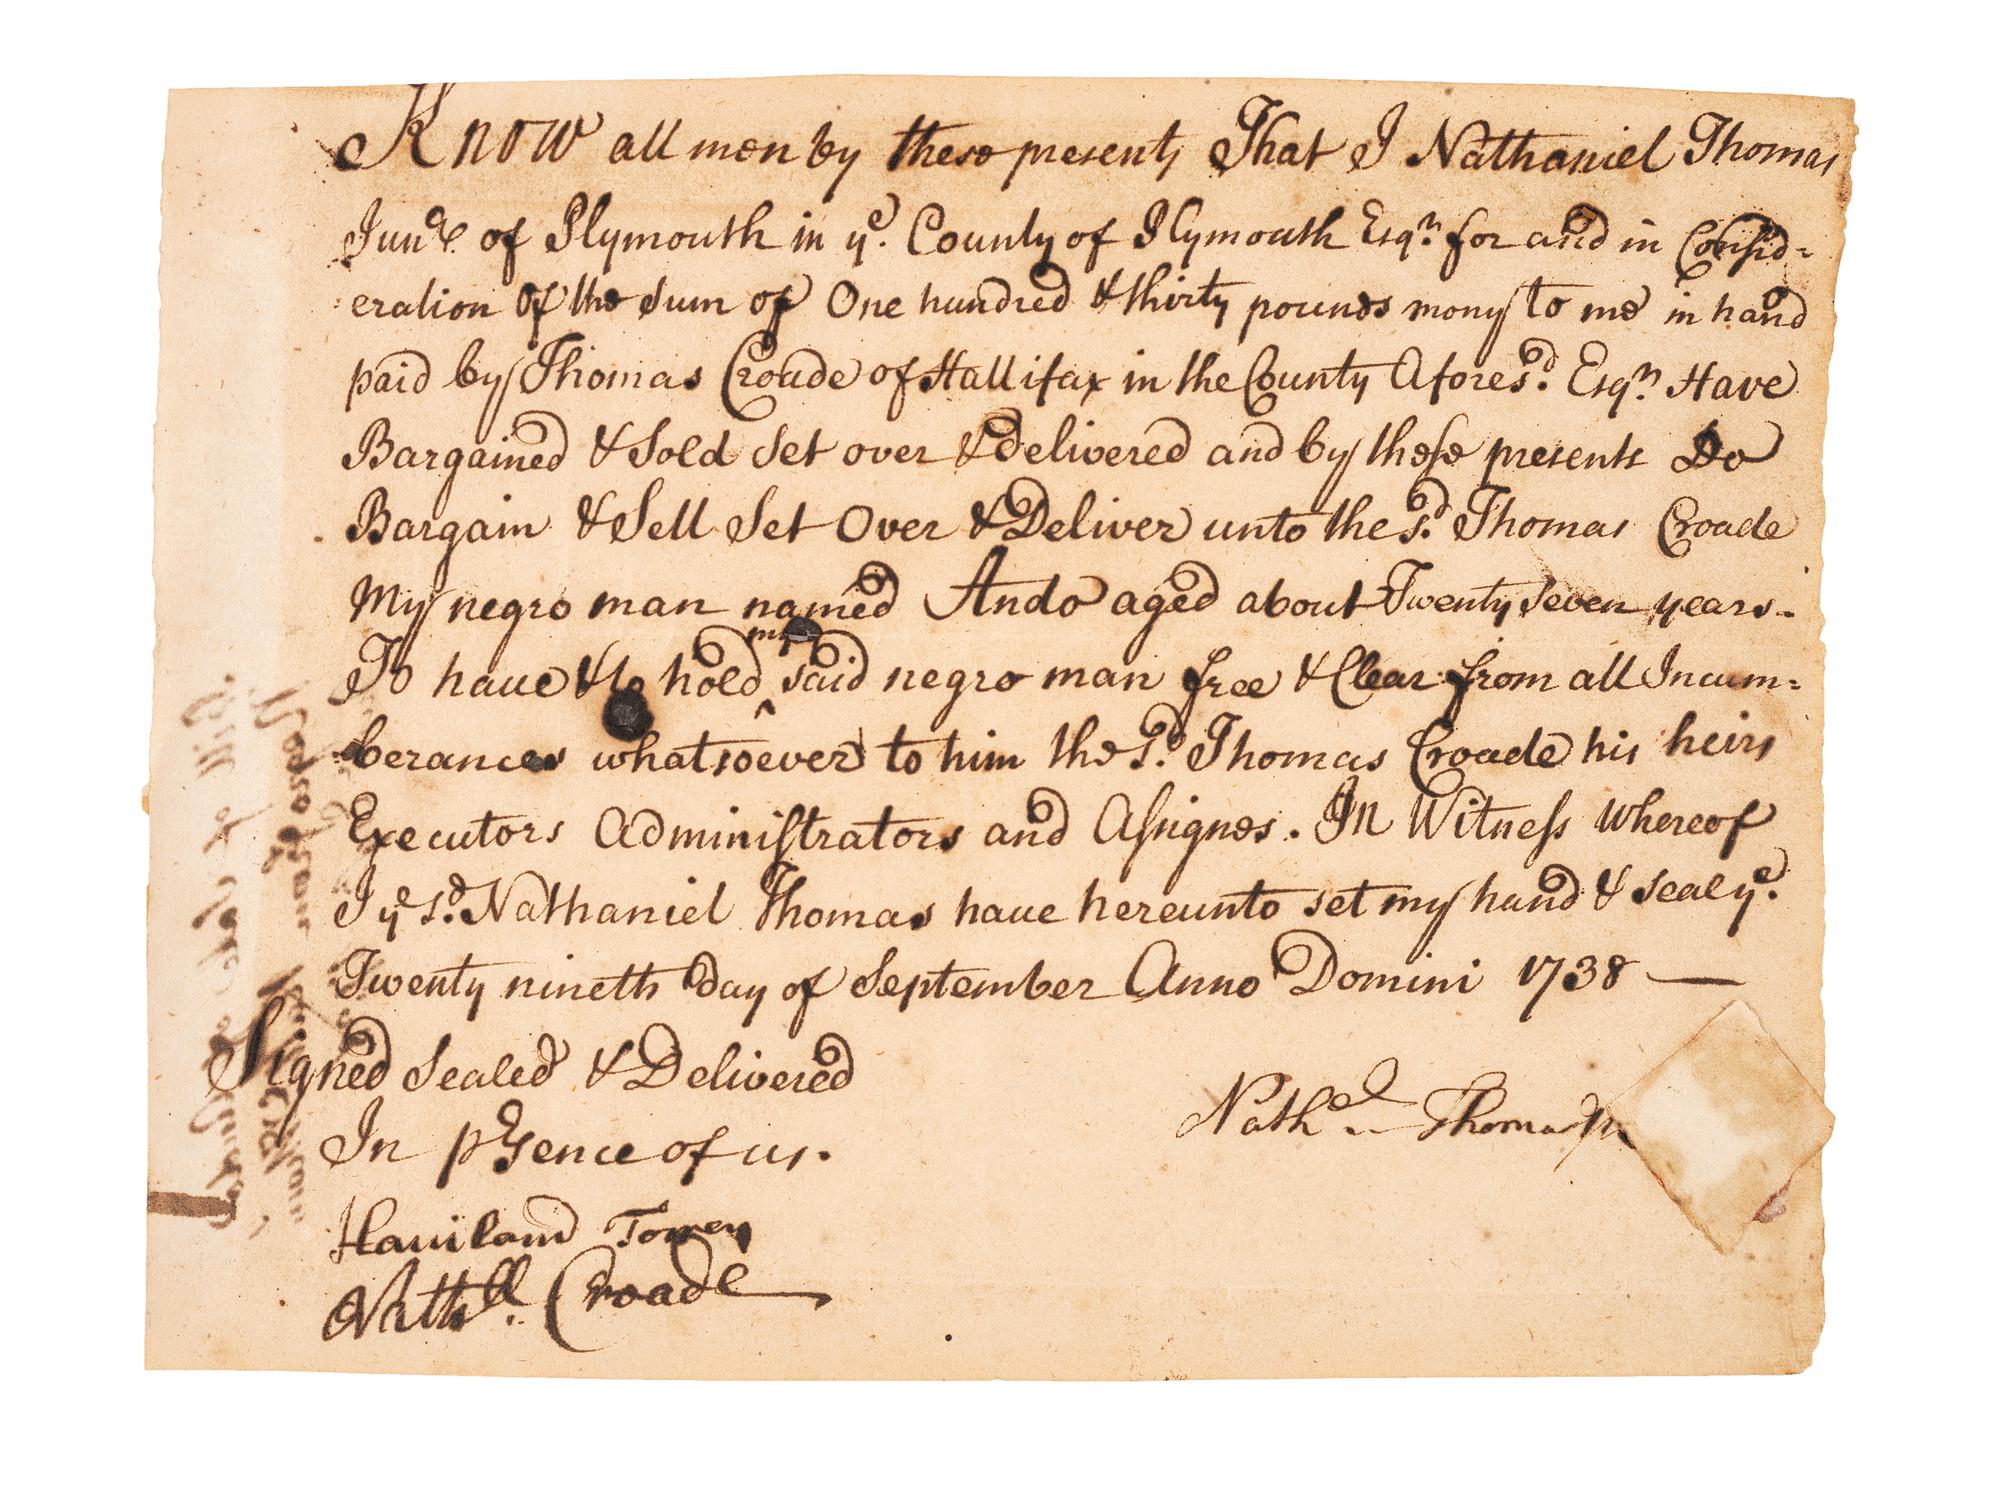 Know all men by these presents That I Nathaniel Thomas
Junr. of Plymouth in ye. County of Plymouth Esqr. for and in Consid=
eration of the Sum of One hundred & thirty pounds mony to me in hand
paid by Thomas Croade of Hallifax in the County Aforesd. Esqr. Have
Bargained & Sold Set over & Delivered and by these presents Do
Bargain & Sell Set Over & Deliver unto the sd. Thomas Croade
My negro man named Ando aged about Twenty Seven years.
my
To have & to hold ^ said negro man free & Clear from all Incum=
berances whatsoever to him the sd. Thomas Croade his heirs
Executors Administrators and Assignes. In Witness whereof
I ye sd. Nathaniel Thomas have hereunto set my hand & seal ye.
Twenty nineth day of September Anno Domini 1738 —
Signed Sealed & Delivered
In prsence of us.
Nathel Thomas Jr
Haviland Torrey
Nathll. Croade